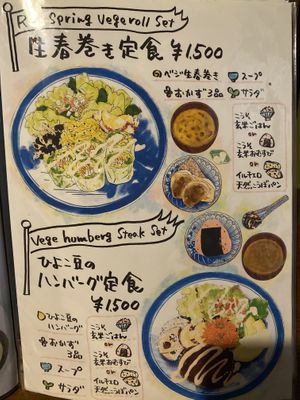 Raw Spring Vege roll Set
生春巻き定食 ¥1,500
ベジ生春巻き
スープ
おかず3品
サラダ
こうそ
玄米ごはん
or
こうそ
玄米おむすび
or
天然こうぼパン
Vege humberg Steak Set
ひよこ豆の
ハンバーグ定食
¥1500
ひよこ豆の
ハンバーグ
おかず
3品
スープ
サラダ
こうそ
玄米ごはん
or
こうそ
玄米おむすび
or
天然こうぼパン